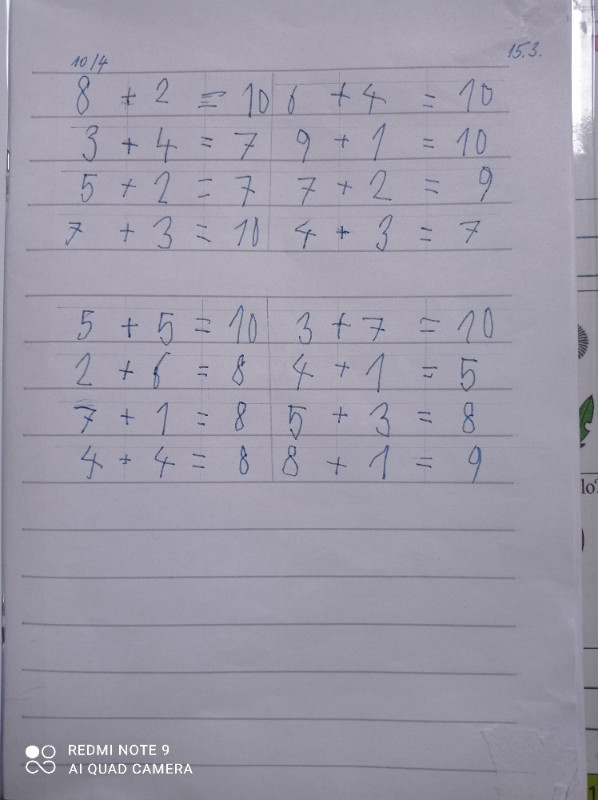 10/4 15.3.
8 + 2 = 10 6 + 4 = 10
3 + 4 = 7 9 + 1 = 10
5 + 2 = 7 7 + 2 = 9
7 + 3 = 10 4 + 3 = 7
5 + 5 = 10 3 + 7 = 10
2 + 6 = 8 4 + 1 = 5
7 + 1 = 8 5 + 3 = 8
4 + 4 = 8 8 + 1 = 9
lo?
REDMI NOTE 9
AI QUAD CAMERA